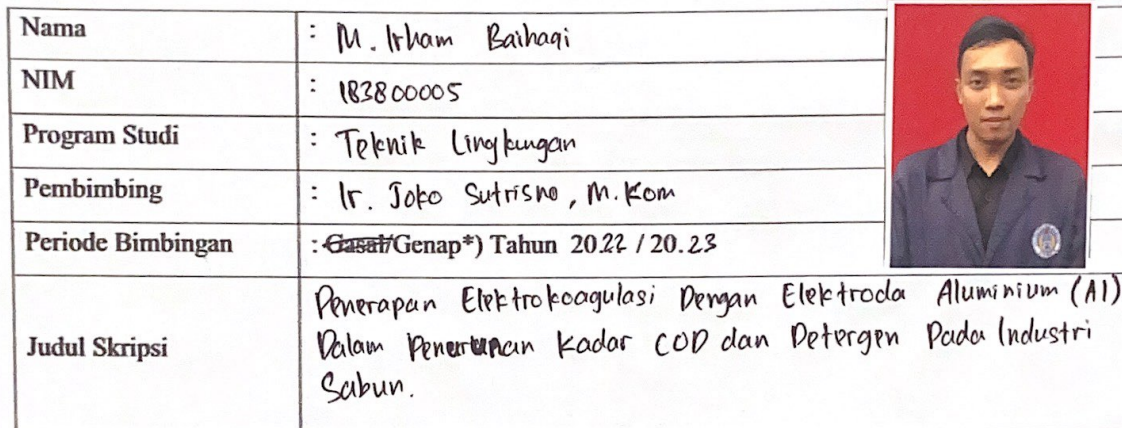 Nama : M. Irham Baihaqi
NIM : 183800005
Program Studi : Teknik Lingkungan
Pembimbing : Ir. Joko Sutrisno, M.Kom
Periode Bimbingan : Gasal/Genap*) Tahun 2022 / 20.23
Judul Skripsi : Penerapan Elektrokoagulasi Dengan Elektroda Aluminium (Al)
Dalam Penurunan Kadar COD dan Detergen Pada Industri
Sabun.